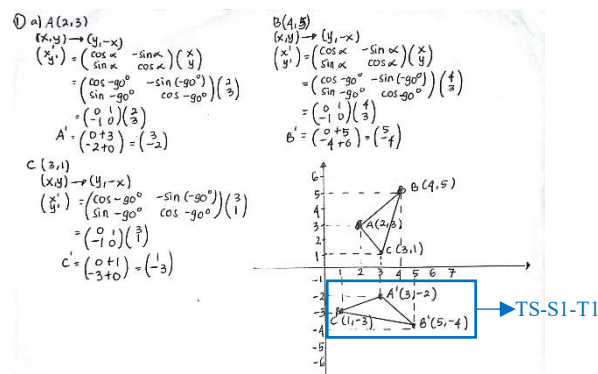 ① a) A(2,3)
(x,y) → (y,-x)
(x' y') = (cos α -sin α sin α cos α)(x y)
= (cos -90° -sin (-90°) sin -90° cos -90°)(2 3)
= (0 1 -1 0)(2 3)
A' = (0+3 -2+0) = (3 -2)
C (3,1)
(x,y) → (y,-x)
(x' y') = (cos -90° -sin (-90°) sin -90° cos -90°)(3 1)
= (0 1 -1 0)(3 1)
C' = (0+1 -3+0) = (1 -3)
B(4,5)
(x,y) → (y,-x)
(x' y') = (cos α -sin α sin α cos α)(x y)
= (cos -90° -sin (-90°) sin -90° cos -90°)(4 3)
= (0 1 -1 0)(4 3)
B' = (0+5 -4+0) = (5 -4)
6
5
4
3
2
1
B (4,5)
A(2,3)
C (3,1)
1 2 3 4 5 6 7
-1
-2
-3
-4
-5
-6
A'(3,-2)
C'(1,-3)
B'(5,-4)
TS-S1-T1